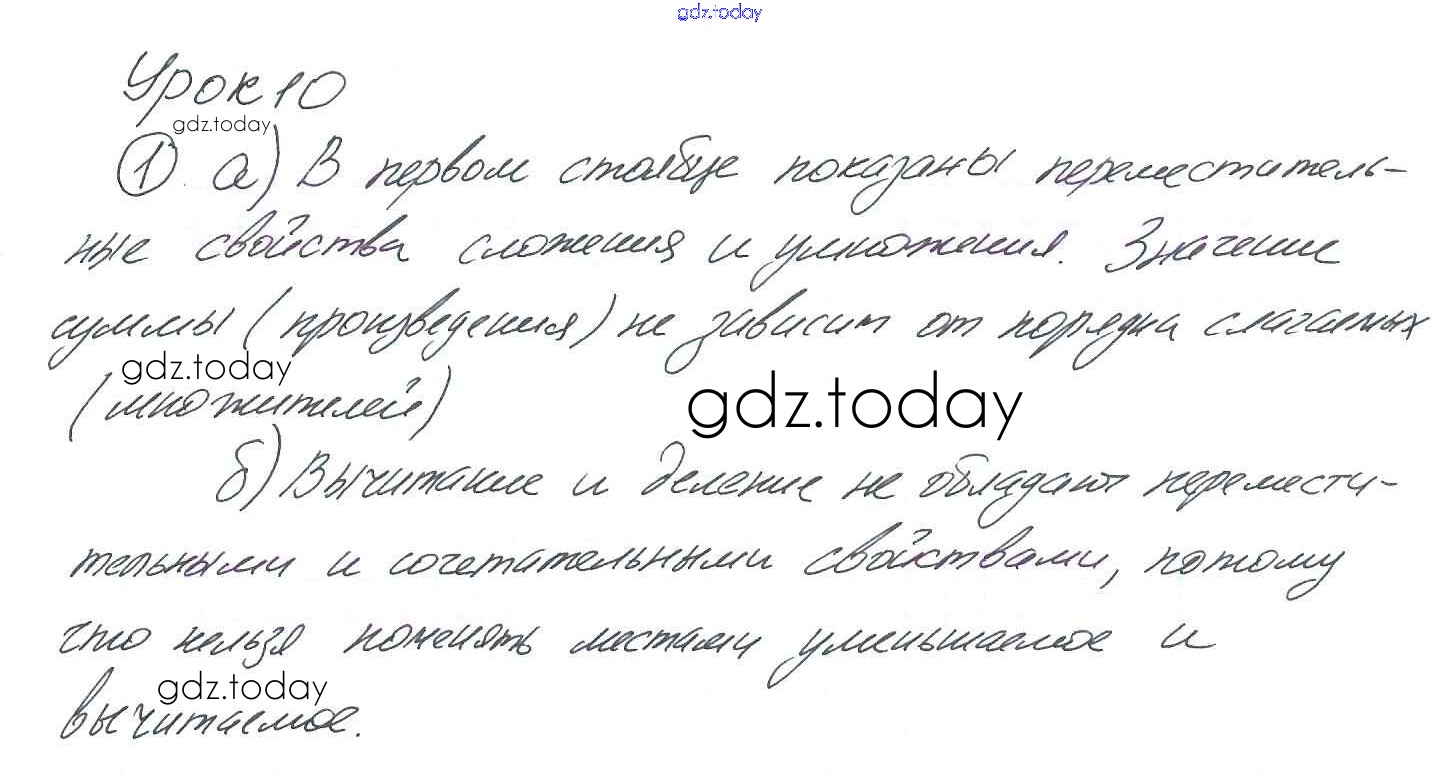 gdz.today
Урок 10
gdz.today
① а) В первом столбце показаны переместитель-
ные свойства сложения и умножения. Значение
суммы (произведения) не зависит от порядка слагаемых
gdz.today
(множителей)
gdz.today
б) Вычитание и деление не обладают перемести-
тельными и сочетательными свойствами, потому
что нельзя поменять местами уменьшаемое и
gdz.today
вычитаемое.